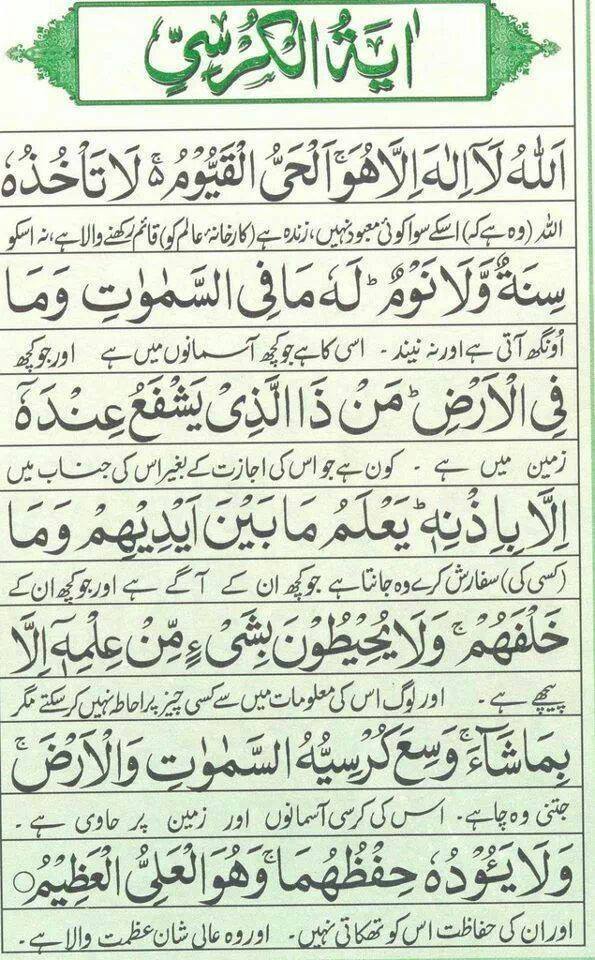 اٰيَةُ الْكُرْسِيِّ
اَللّٰهُ لَاۤ اِلٰهَ اِلَّا هُوَ ۚ اَلْحَیُّ الْقَیُّوْمُ ۬ۚ لَا تَاْخُذُهٗ
اللہ (وہ ہے کہ) اسکے سوا کوئی معبود نہیں، زندہ ہے (کارخانۂ عالم کو) قائم رکھنے والا ہے، نہ اسکو
سِنَةٌ وَّلَا نَوْمٌ ؕ لَهٗ مَا فِی السَّمٰوٰتِ وَمَا
اُونگھ آتی ہے اور نہ نیند ۔ اسی کا ہے جو کچھ آسمانوں میں ہے اور جو کچھ
فِی الْاَرْضِ ؕ مَنْ ذَا الَّذِیْ یَشْفَعُ عِنْدَهٗۤ
زمین میں ہے ۔ کون ہے جو اس کی اجازت کے بغیر اس کی جناب میں
اِلَّا بِاِذْنِهٖ ؕ یَعْلَمُ مَا بَیْنَ اَیْدِیْهِمْ وَمَا
(کسی کی) سفارش کرے وہ جانتا ہے جو کچھ ان کے آگے ہے اور جو کچھ ان کے
خَلْفَهُمْ ۚ وَلَا یُحِیْطُوْنَ بِشَیْءٍ مِّنْ عِلْمِهٖۤ اِلَّا
پیچھے ہے ۔ اور لوگ اس کی معلومات میں سے کسی چیز پر احاطہ نہیں کر سکتے مگر
بِمَا شَآءَ ۚ وَسِعَ كُرْسِیُّهُ السَّمٰوٰتِ وَالْاَرْضَ ۚ
جتنی وہ چاہے ۔ اس کی کرسی آسمانوں اور زمین پر حاوی ہے ۔
وَلَا یَـُٔوْدُهٗ حِفْظُهُمَا ۚ وَهُوَ الْعَلِیُّ الْعَظِیْمُ ○
اور ان کی حفاظت اس کو تھکاتی نہیں ۔ اور وہ عالی شان عظمت والا ہے ۔